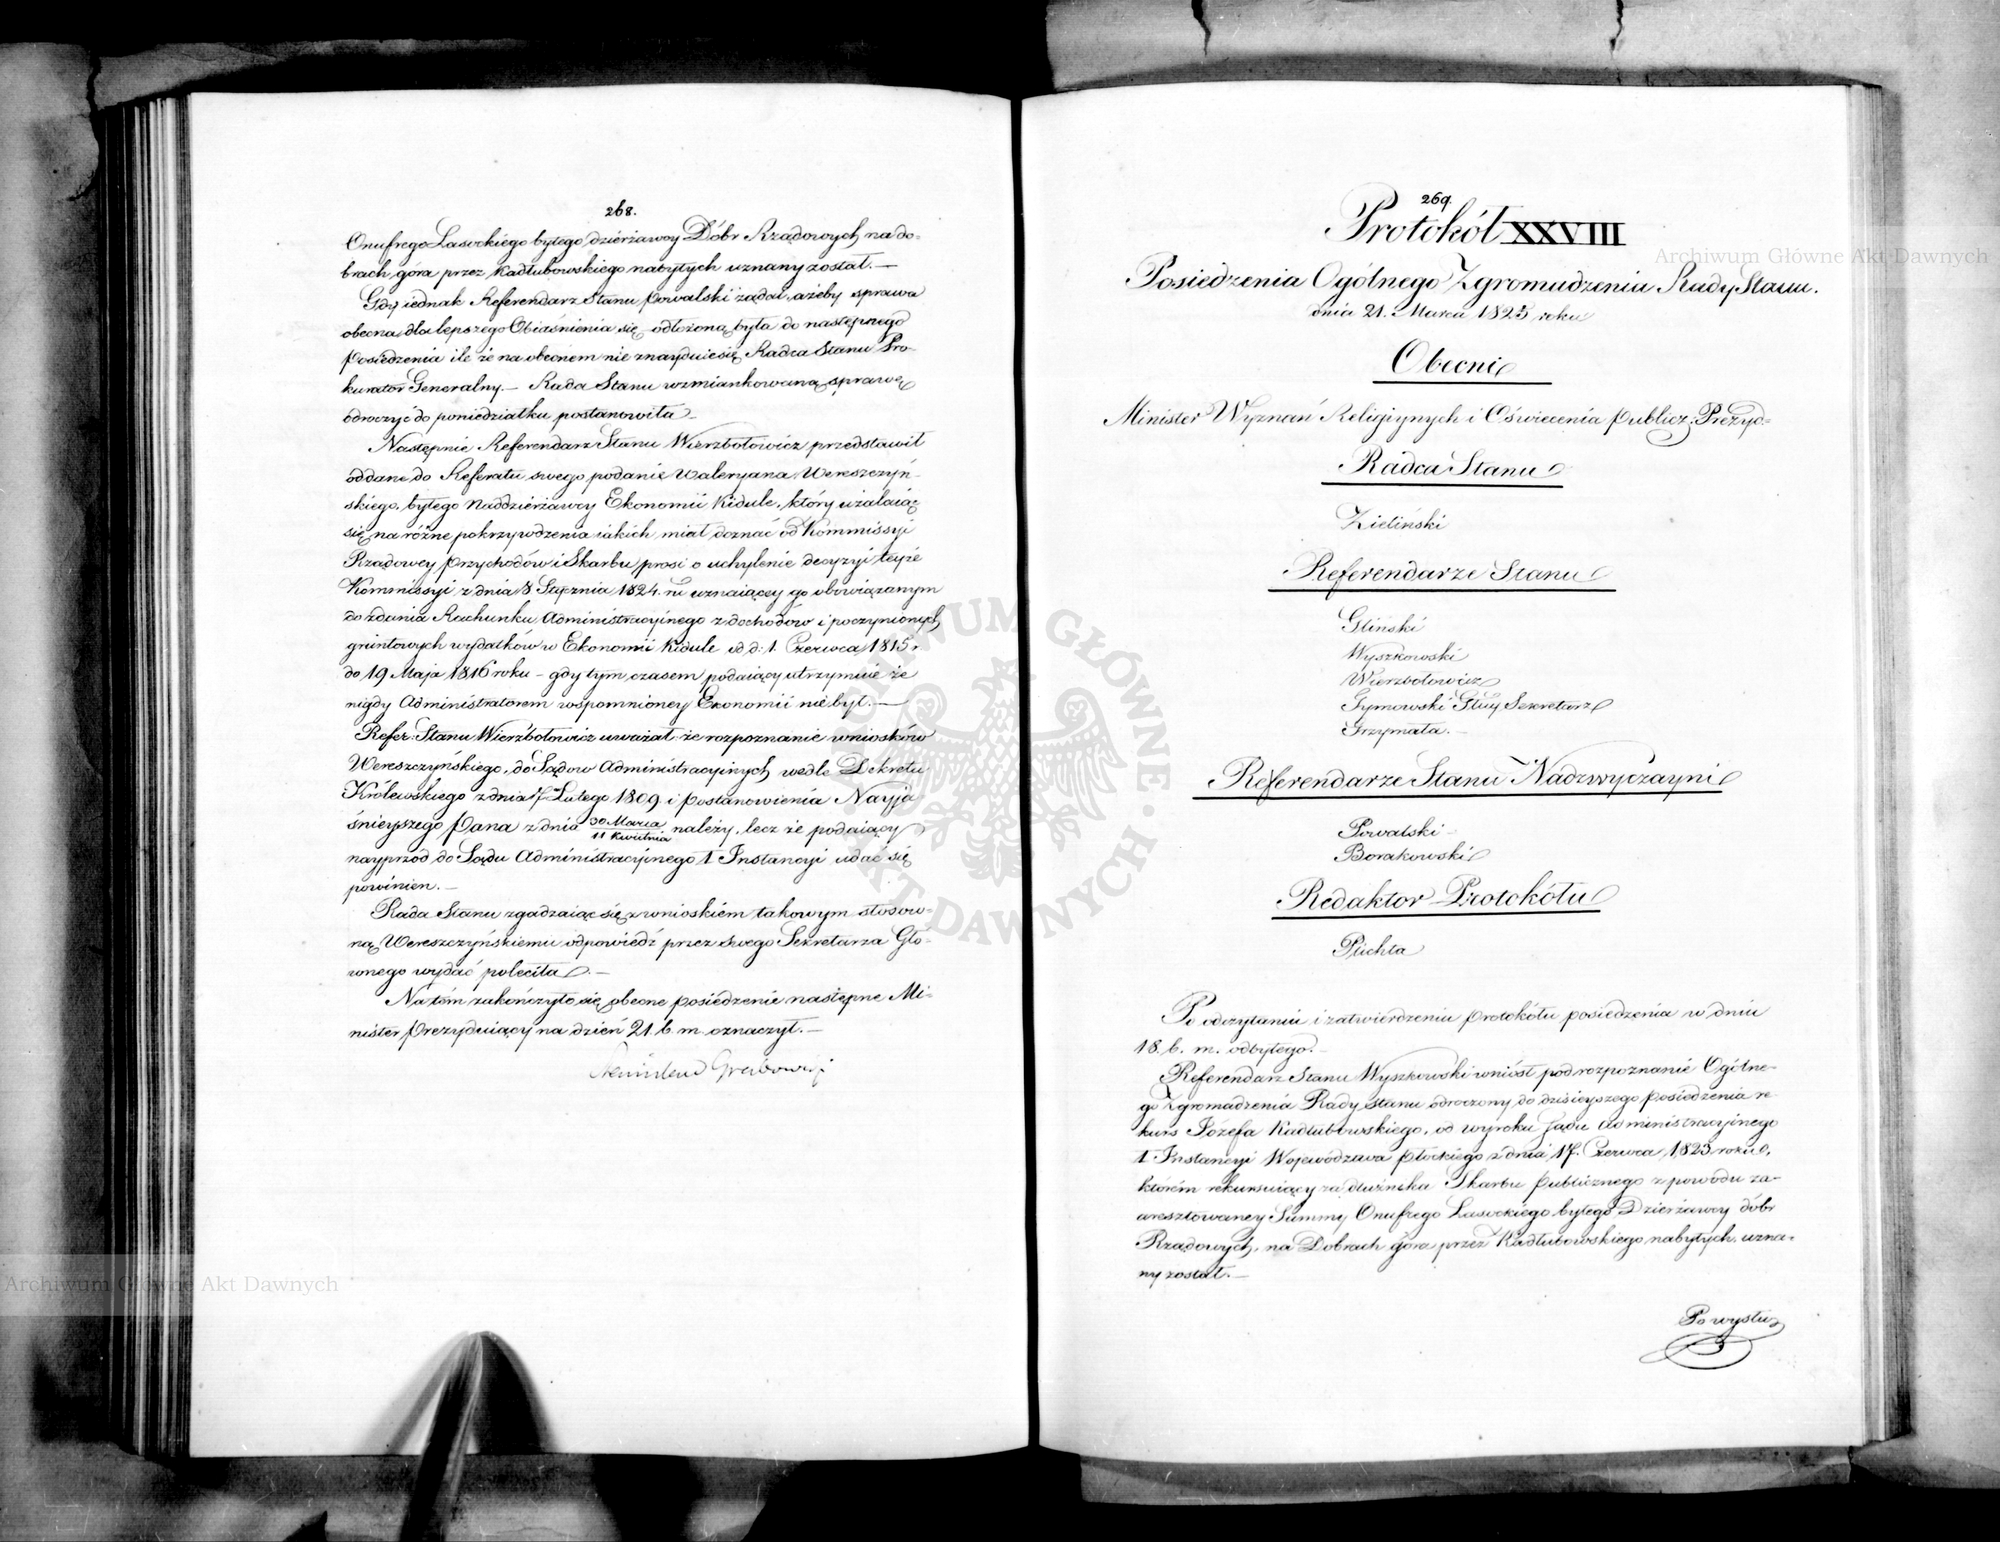 268.
Onufrego Lasockiego byłego dzierżawcy Dóbr Rządowych na do-
brach góra przez Kadłubowskiego nabytych uznany został. —
Gdy iednak Referendarz Stanu Powalski żądał, ażeby sprawa
obecna dla lepszego Obiaśnienia się odłożoną była do następnego
Posiedzenia ile że na obecnem nie znayduie się Radca Stanu Pro-
kurator Generalny. — Rada Stanu wzmiankowaną sprawę
odroczyć do poniedziałku postanowiła —
Następnie Referendarz Stanu Wierzbołowicz przedstawił
oddane do Referatu swego podanie Waleryana Wereszczyń-
skiego, byłego Naddzierżawcy Ekonomii Kidule, który użalaiąc
się na różne pokrzywdzenia iakich miał doznać od Kommissyi
Rządowey Przychodów i Skarbu prosi o uchylenie decyzyi teyże
Kommissyi z dnia 8 Stycznia 1824. r. uznaiącey go obowiązanym
do zdania Rachunku Administracyinego z dochodów i poczynionych
gruntowych wydatków w Ekonomii Kidule od d. 1. Czerwca 1815 r
do 19 Maja 1816 roku — gdy tym czasem podaiący utrzymuie że
nigdy Administratorem wspomnioney Ekonomii nie był. —
Refer: Stanu Wierzbołowicz uważał że rozpoznanie wniosków
Wereszczyńskiego, do Sądów Administracyinych wedle Dekretu
Królewskiego z dnia 7 Lutego 1809 i postanowienia Nayja
śnieyszego Pana z dnia 30 Marca / 11 Kwietnia należy, lecz że podaiący
nayprzód do Sądu Administracyinego 1 Instancyi udać się
powinien. —
Rada Stanu zgadzaiąc się z wnioskiem takowym stosow-
ną Wereszczyńskiemu odpowiedź przez swego Sekretarza Głó-
wnego wydać poleciła. —
Na tém zakończyło się obecne posiedzenie następne Mi-
nister Prezyduiący na dzień 21 b. m. oznaczył. —
Stanisław Grabowski
269.
Protokół XXVIII
Posiedzenia Ogólnego Zgromadzenia Rady Stanu.
dnia 21. Marca 1825 roku
Obecni
Minister Wyznań Religijnych i Oświecenia Publicz: Prezyd-
Radca Stanu
Zieliński
Referendarze Stanu
Gliński
Wyszkowski
Wierzbołowicz
Tymowski Głny Sekretarz
Grzymała. —
Referendarze Stanu Nadzwyczayni
Powalski —
Borakowski
Redaktor Protokółu
Plichta
Po odczytaniu i zatwierdzeniu Protokółu posiedzenia w dniu
18. b. m. odbytego. —
Referendarz Stanu Wyszkowski wniósł pod rozpoznanie Ogólne-
go Zgromadzenia Rady Stanu odroczony do dzisieyszego posiedzenia re
kurs Józefa Kadłubowskiego, od wyroku Sądu Administracyinego
1 Instancyi Województwa Płockiego z dnia 17. Czerwca 1823 roku,
którém rekursuiący za dłużnika Skarbu Publicznego z powodu za-
aresztowaney Summy Onufrego Lasockiego byłego Dzierżawcy dóbr
Rządowych, na Dobrach góra przez Kadłubowskiego nabytych, uzna-
ny został. —
Powysłu
Archiwum Główne Akt Dawnych
Archiwum Główne Akt Dawnych
ARCHIWUM GŁÓWNE AKT DAWNYCH